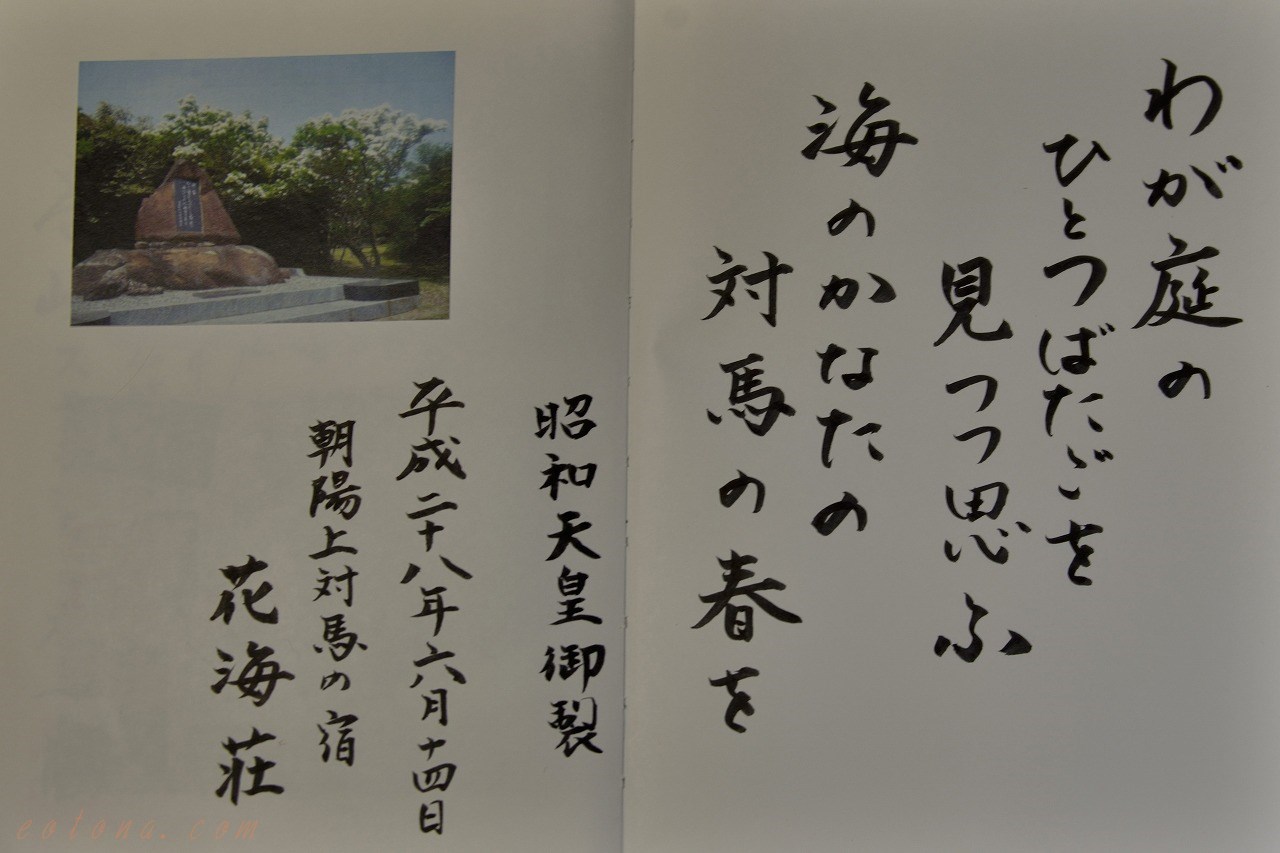 わが庭の
ひとつばたごを
見つつ思ふ
海のかなたの
対馬の春を
昭和天皇御製
平成二十八年六月十四日
朝陽上対馬の宿
花海荘
eotona.com